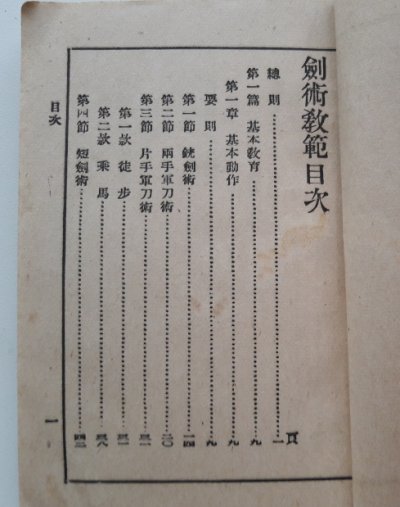 劍術教範目次
頁
總則…………一
第一篇 基本教育…………九
第一章 基本動作…………九
要則…………九
第一節 銃劍術…………一四
第二節 兩手軍刀術…………二〇
第三節 片手軍刀術…………
第一款 徒步…………
第二款 乘馬…………三八
第四節 短劍術…………四三
目次
一